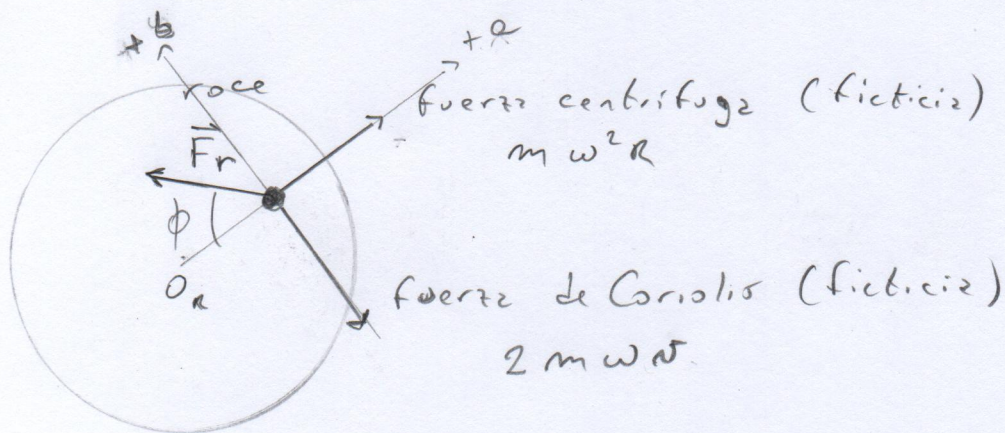 +b
+a
roce
fuerza centrífuga (ficticia)
m ω² R
F⃗r
ϕ
O_R
fuerza de Coriolis (ficticia)
2 m ω v